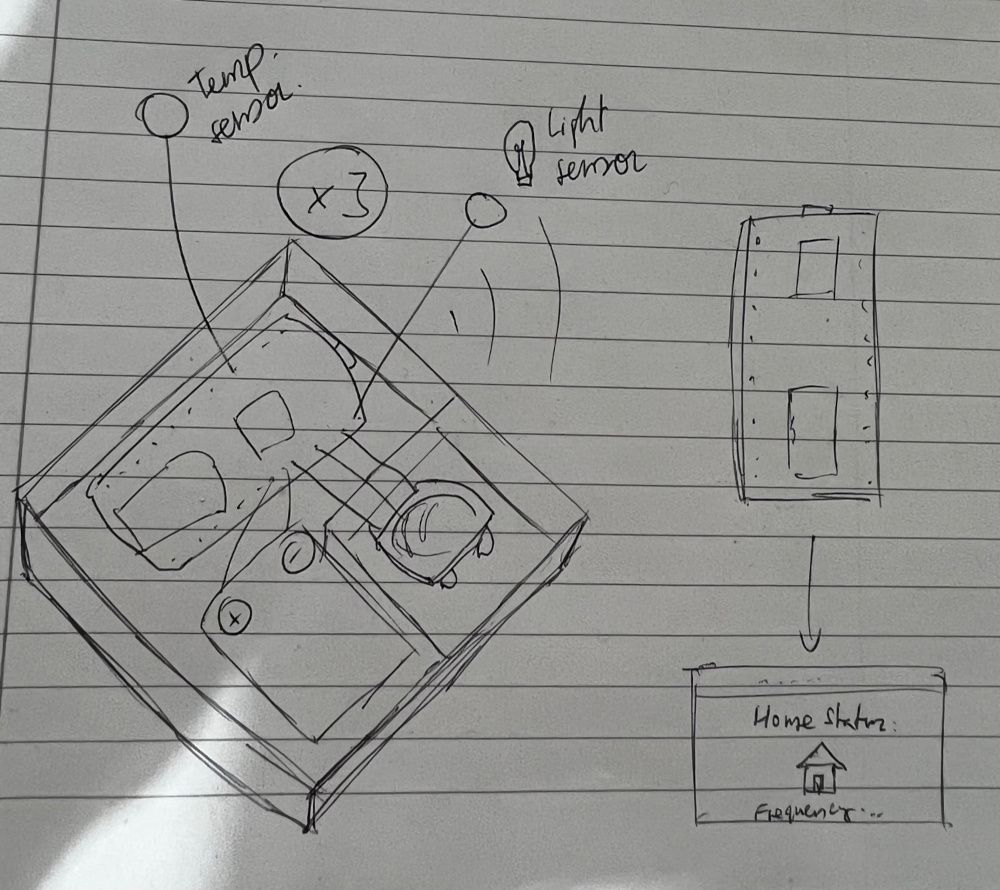 Temp.
sensor.
Light
sensor
x3
Home Status:
Frequency...